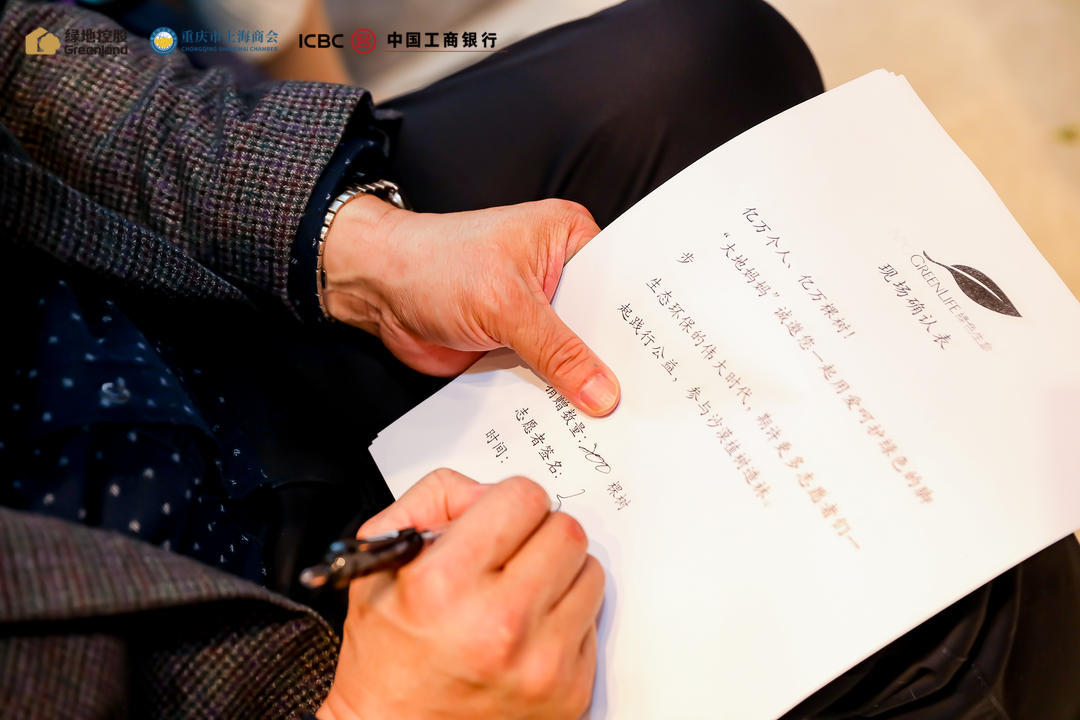 绿地控股
Greenland
重庆市上海商会
CHONGQING SHANGHAI CHAMBER
ICBC 中国工商银行
GREENLIFE 绿色生命
现场确认表
亿万个人、亿万棵树!
“大地妈妈”诚邀您一起用爱呵护绿色的脚
步
生态环保的伟大时代,期许更多志愿者们一
起践行公益,参与沙漠植树造林。
捐赠数量:200 棵树
志愿者签名:
时间: